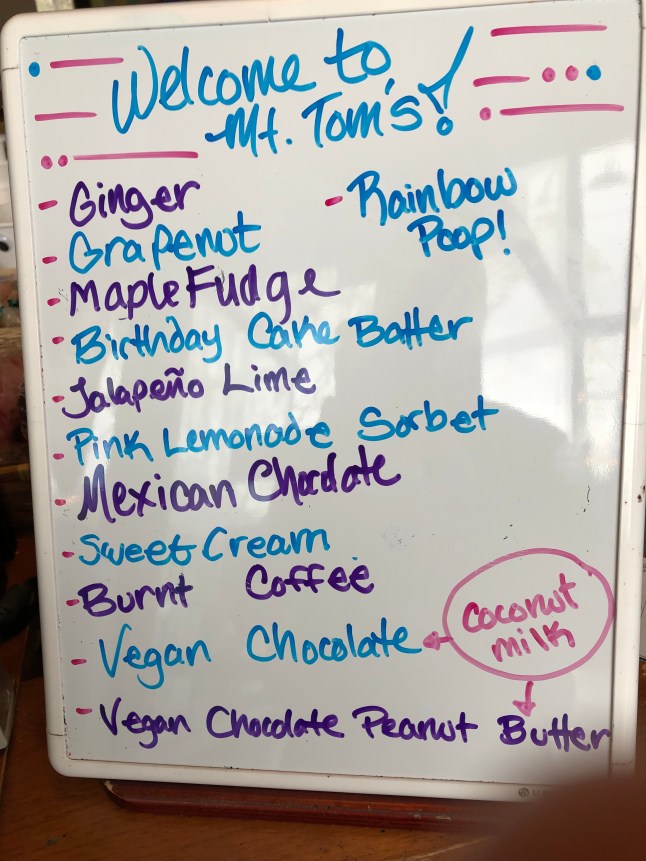 Welcome to
Mt. Tom's!
- Ginger
- Grapenut
- Maple Fudge
- Birthday Cake Batter
- Jalapeño Lime
- Pink Lemonade Sorbet
- Mexican Chocolate
- Sweet Cream
- Burnt Coffee
- Vegan Chocolate
- Vegan Chocolate Peanut Butter
- Rainbow
Poop!
coconut
milk